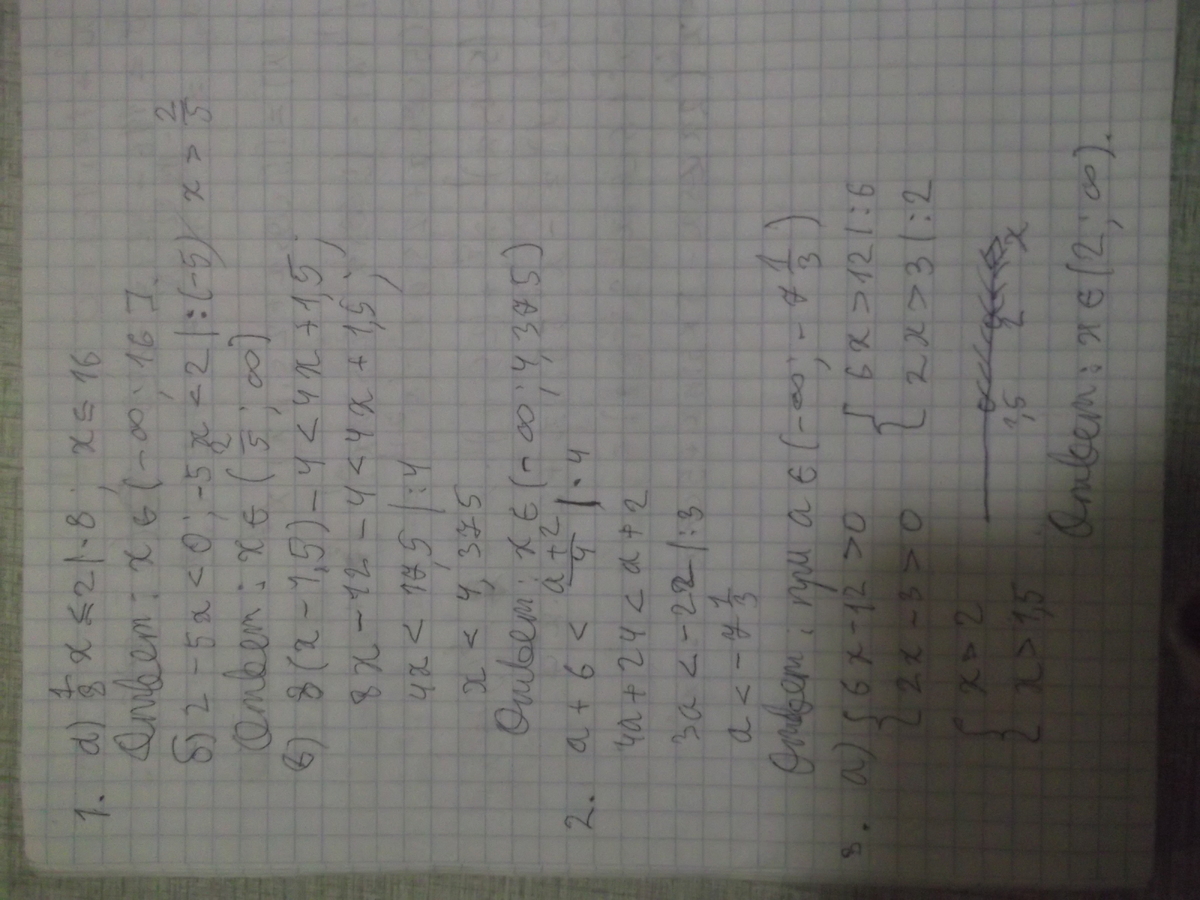 1. а) 1/8 x ≤ 2 | · 8; x ≤ 16
Ответ: x ∈ (-∞; 16].
б) 2 - 5x < 0; -5x < 2 | : (-5) x > 2/5
Ответ: x ∈ (2/5; ∞)
в) 8(x - 1,5) - 4 < 4x + 1,5;
8x - 12 - 4 < 4x + 1,5;
4x < 17,5 | : 4
x < 4,375
Ответ: x ∈ (-∞; 4,375)
2. a + 6 < (a + 2)/4 | · 4
4a + 24 < a + 2
3a < -22 | : 3
a < -7 1/3
Ответ: при a ∈ (-∞; -7 1/3)
3. а) { 6x - 12 > 0 { 6x > 12 | : 6
{ 2x - 3 > 0 { 2x > 3 | : 2
{ x > 2
{ x > 1,5
1,5 2 x
Ответ: x ∈ (2; ∞).